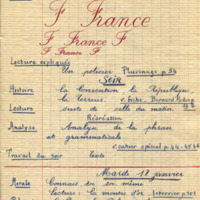 F France
F F France F
F France F
Lecture expliquée
Un policier Plurinage p.34
Soir
Histoire la Convention, la République,
la Terreur. v. fiche, Bernard Rebing
Lecture suite de celle du matin.
Récréation
Analyse Analyse de la phrase
et grammaticale
v. cahier spécial p.44-45 et
Travail du soir texte
Mardi 17 janvier
Morale Connais-toi toi même
Lecture: la montre d'or.